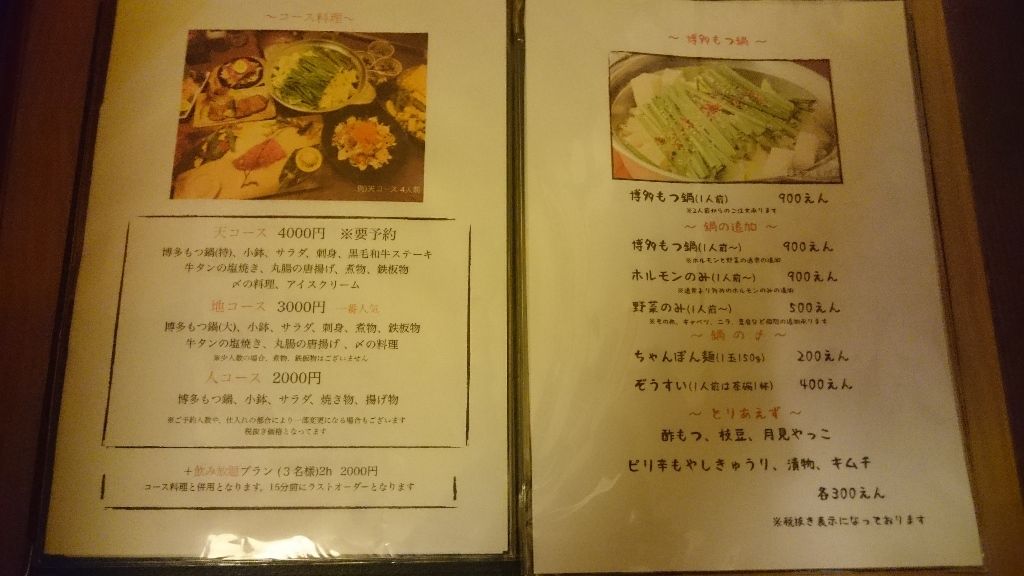 ～コース料理～
例)天コース 4人前
天コース 4000円 ※要予約
博多もつ鍋(特)、小鉢、サラダ、刺身、黒毛和牛ステーキ
牛タンの塩焼き、丸腸の唐揚げ、煮物、鉄板物
〆の料理、アイスクリーム
地コース 3000円 一番人気
博多もつ鍋(大)、小鉢、サラダ、刺身、煮物、鉄板物
牛タンの塩焼き、丸腸の唐揚げ、〆の料理
※少人数の場合、煮物、鉄板物はございません
人コース 2000円
博多もつ鍋、小鉢、サラダ、焼き物、揚げ物
※ご予約人数や、仕入れの都合により一部変更になる場合もございます
税抜き価格となってます
+飲み放題プラン (3名様)2h 2000円
コース料理と併用となります。15分前にラストオーダーとなります
～ 博多もつ鍋 ～
博多もつ鍋(1人前) 900えん
※2人前からのご注文承ります
～ 鍋の追加 ～
博多もつ鍋(1人前～) 900えん
※ホルモンと野菜の通常の追加
ホルモンのみ(1人前～) 900えん
※通常より多めのホルモンのみの追加
野菜のみ(1人前～) 500えん
※その他、キャベツ、ニラ、豆腐など個別の追加承ります
～ 鍋の〆 ～
ちゃんぽん麺(1玉150g) 200えん
ぞうすい(1人前は茶碗1杯) 400えん
～ とりあえず ～
酢もつ、枝豆、月見やっこ
ピリ辛もやしきゅうり、漬物、キムチ
各300えん
※税抜き表示になっております